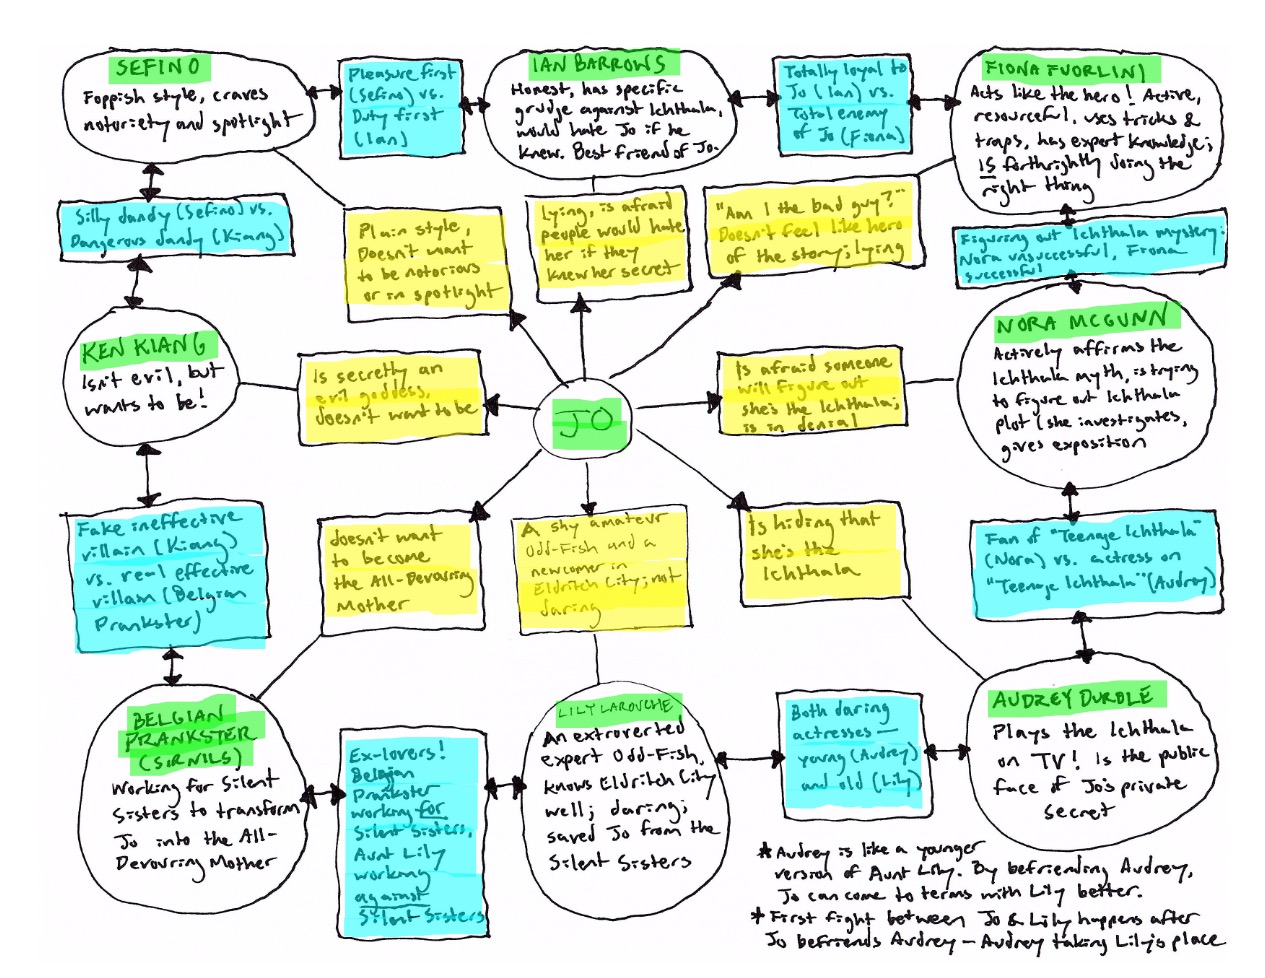 SEFINO
Foppish style, craves
notoriety and spotlight
Pleasure first
(Sefino) vs.
Duty first
(Ian)
IAN BARROWS
Honest, has specific
grudge against Ichthala,
would hate Jo if he
knew. Best friend of Jo.
Totally loyal to
Jo (Ian) vs.
Total enemy
of Jo (Fiona)
FIONA FUORLINI
Acts like the hero! Active,
resourceful, uses tricks &
traps, has expert knowledge;
IS forthrightly doing the
right thing
Silly dandy (Sefino) vs.
Dangerous dandy (Kiang)
Plain style,
Doesn't want
to be notorious
or in spotlight
Lying, is afraid
people would hate
her if they
knew her secret
"Am I the bad guy?"
Doesn't feel like hero
of the story; lying
Figuring out Ichthala mystery:
Nora unsuccessful, Fiona
successful
KEN KIANG
Isn't evil, but
wants to be!
Is secretly an
evil goddess,
doesn't want to be
JO
Is afraid someone
will figure out
she's the Ichthala;
is in denial
NORA MCGUNN
Actively affirms the
Ichthala myth, is trying
to figure out Ichthala
plot (she investigates,
gives exposition
Fake ineffective
villain (Kiang)
vs. real effective
villain (Belgian
Prankster)
doesn't want
to become
the All-Devouring
Mother
A shy amateur
Odd-Fish and a
newcomer in
Eldritch City; not
daring
Is hiding that
she's the
Ichthala
Fan of "Teenage Ichthala"
(Nora) vs. actress on
"Teenage Ichthala" (Audrey)
BELGIAN
PRANKSTER
(SIR NILS)
Working for Silent
Sisters to transform
Jo into the All-
Devouring Mother
Ex-lovers!
Belgian
Prankster
working for
Silent Sisters,
Aunt Lily
working
against
Silent Sisters
LILY LAROUCHE
An extroverted
expert Odd-Fish,
knows Eldritch City
well; daring;
saved Jo from the
Silent Sisters
Both daring
actresses —
young (Audrey)
and old (Lily)
AUDREY DURBLE
Plays the Ichthala
on TV! Is the public
face of Jo's private
secret
* Audrey is like a younger
version of Aunt Lily. By befriending Audrey,
Jo can come to terms with Lily better.
* First fight between Jo & Lily happens after
Jo befriends Audrey — Audrey taking Lily's place